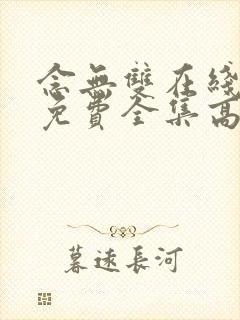 念無雙在綫
免費全集高
暮遠長河